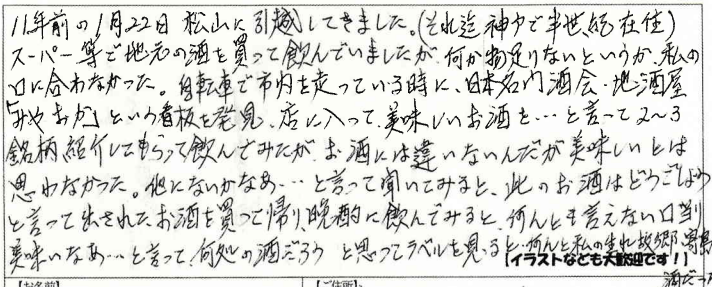 11年前の1月22日 松山に引越してきました。(それ迄神戸で半世紀在住)
スーパー等で地元の酒を買って飲んでいましたが、何か物足りないというか、私の
口に合わなかった。自転車で市内を走っている時に、日本名門酒会・地酒屋
「みやおか」という看板を発見、店に入って、美味しいお酒を…と言って2〜3
銘柄紹介してもらって飲んでみたが、お酒には違いないんだが美味しいとは
思わなかった。他にないかなあ…と言って聞いてみると、此のお酒はどうでしょう
と言って出されたお酒を買って帰り、晩酌に飲んでみると、何んとも言えない口当り
美味いなあ…と言って、何処の酒だろう と思ってラベルを見ると、何んと私の生れ故郷
【イラストなども大歓迎です!】
酒だった
【お名前】
【ご住所】